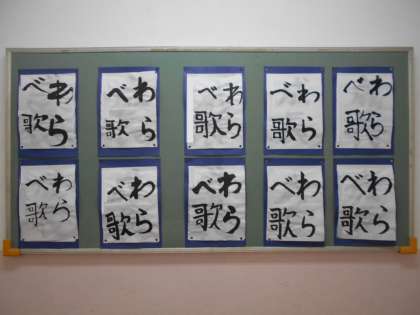 わら
べ歌
わら
べ歌
わら
べ歌
わら
べ歌
わら
べ歌
わら
べ歌
わら
べ歌
わら
べ歌
わら
べ歌
わら
べ歌